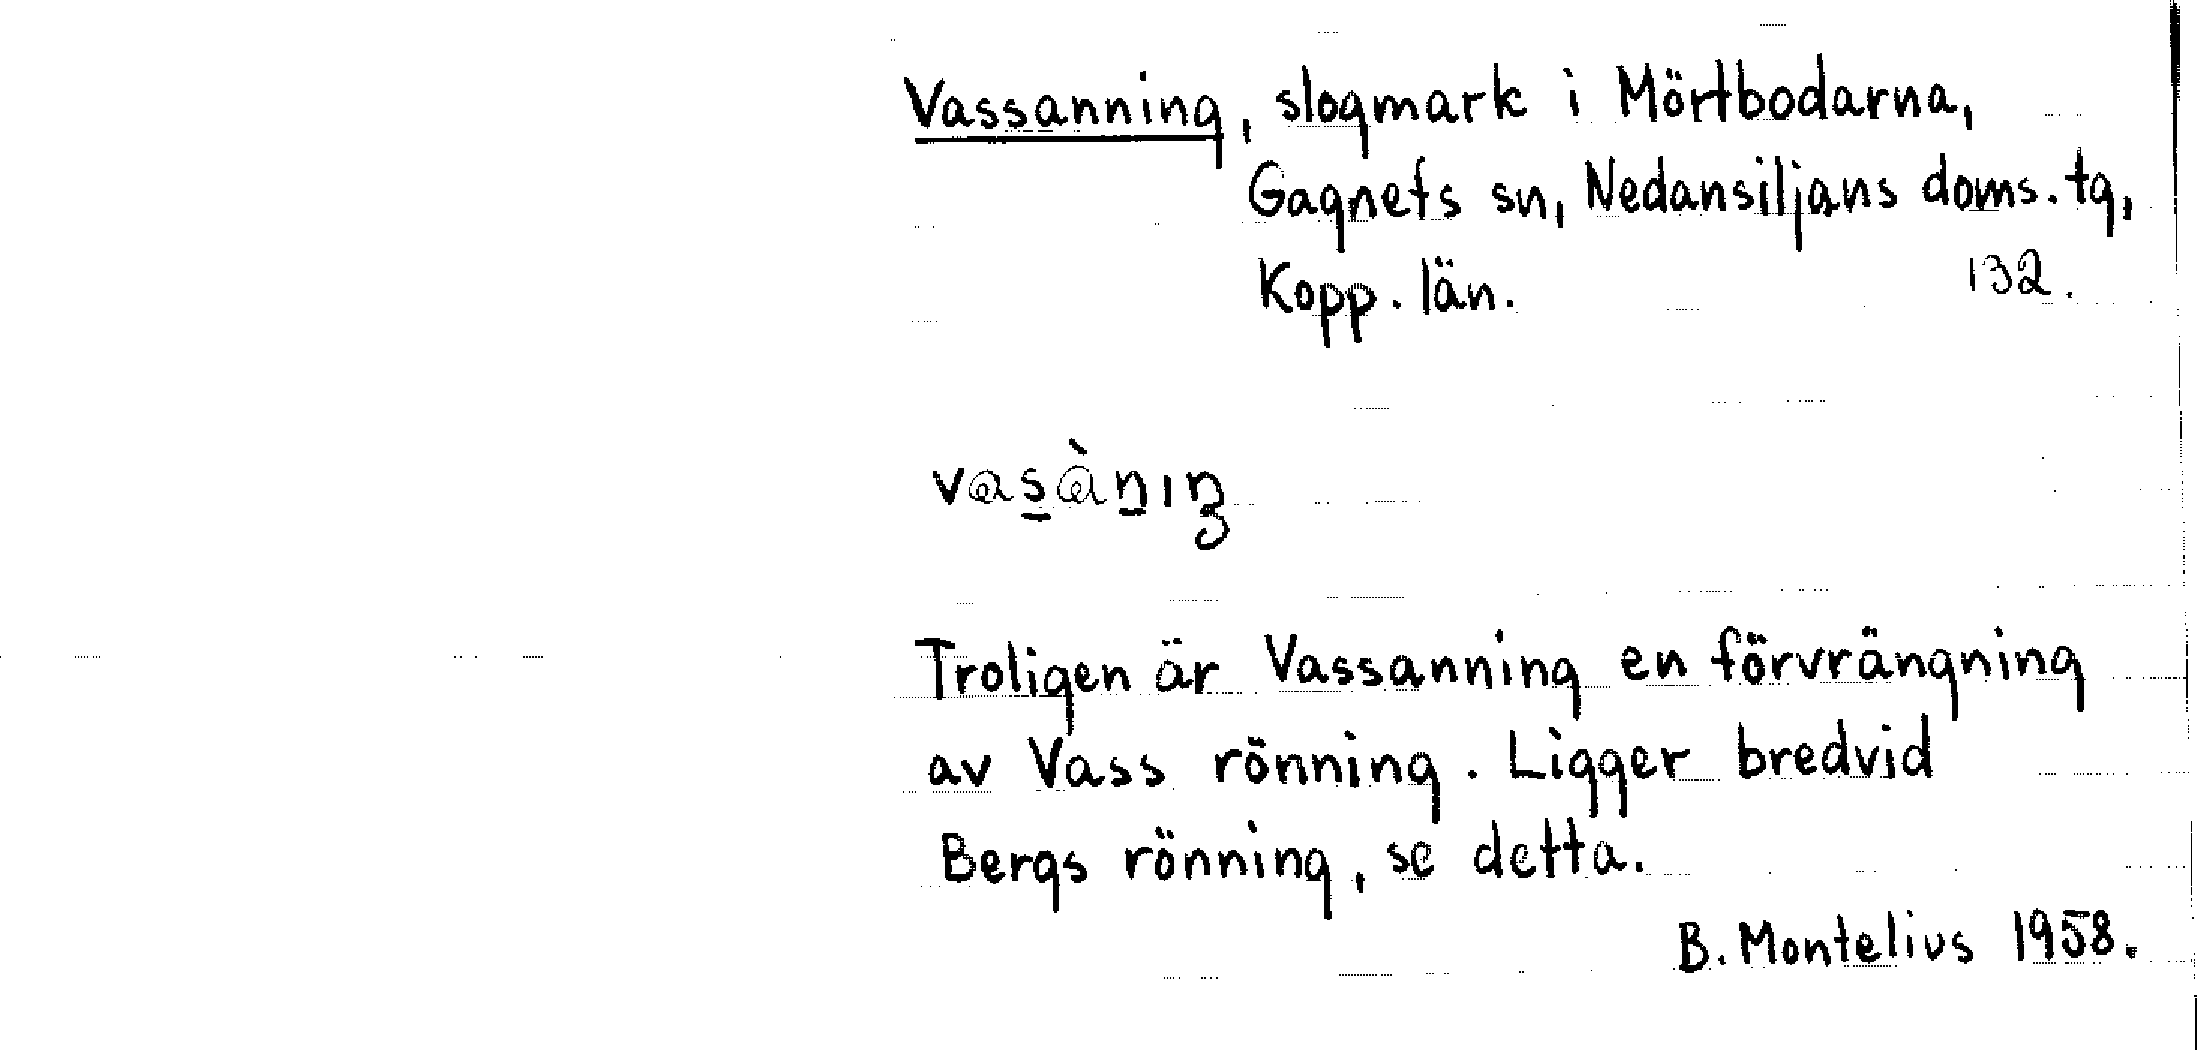 Vassanning, slogmark i Mörtbodarna,
Gagnefs sn, Nedansiljans doms. tg,
Kopp. län. 132.
vasànıŋ
Troligen är Vassanning en förvrängning
av Vass rönning. Ligger bredvid
Bergs rönning, se detta.
B. Montelius 1958.